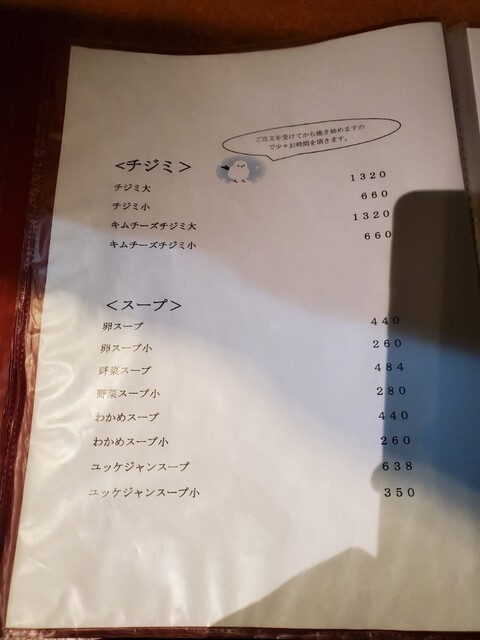 ご注文を受けてから焼き始めますの
で少々お時間を頂きます。
<チジミ>
チジミ大 1320
チジミ小 660
キムチーズチジミ大 1320
キムチーズチジミ小 660
<スープ>
卵スープ 440
卵スープ小 260
野菜スープ 484
野菜スープ小 280
わかめスープ 440
わかめスープ小 260
ユッケジャンスープ 638
ユッケジャンスープ小 350